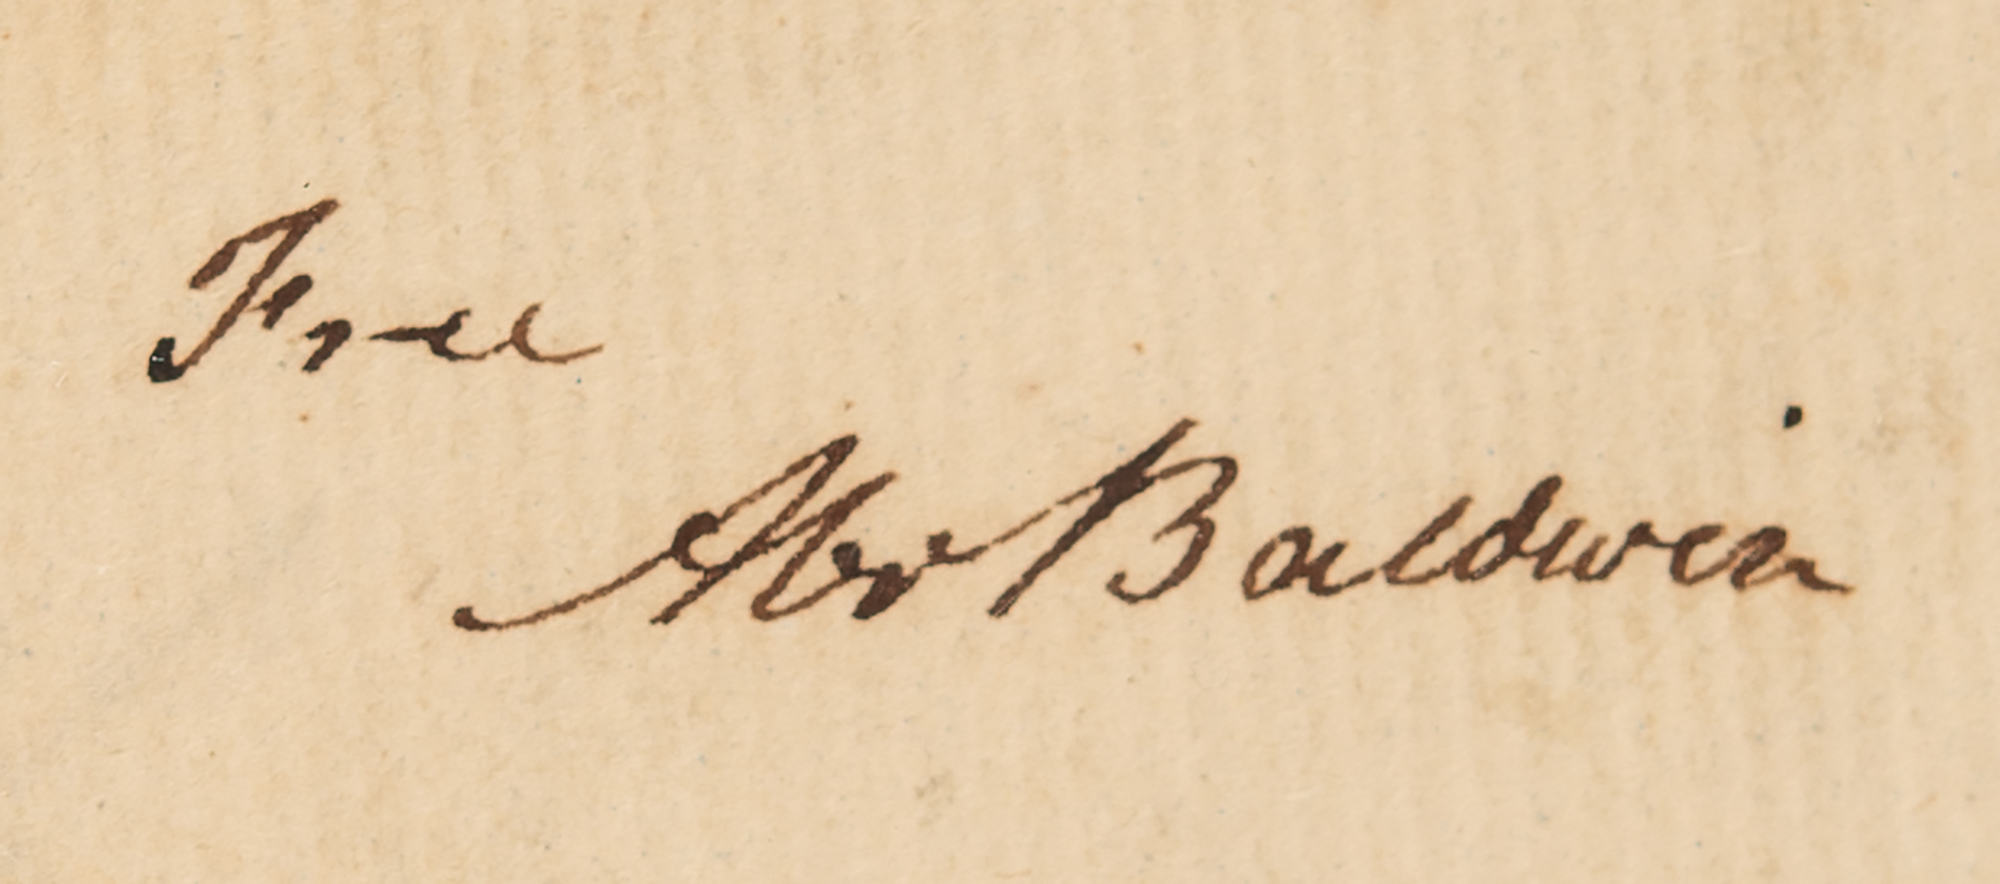 Free
Abr Baldwin